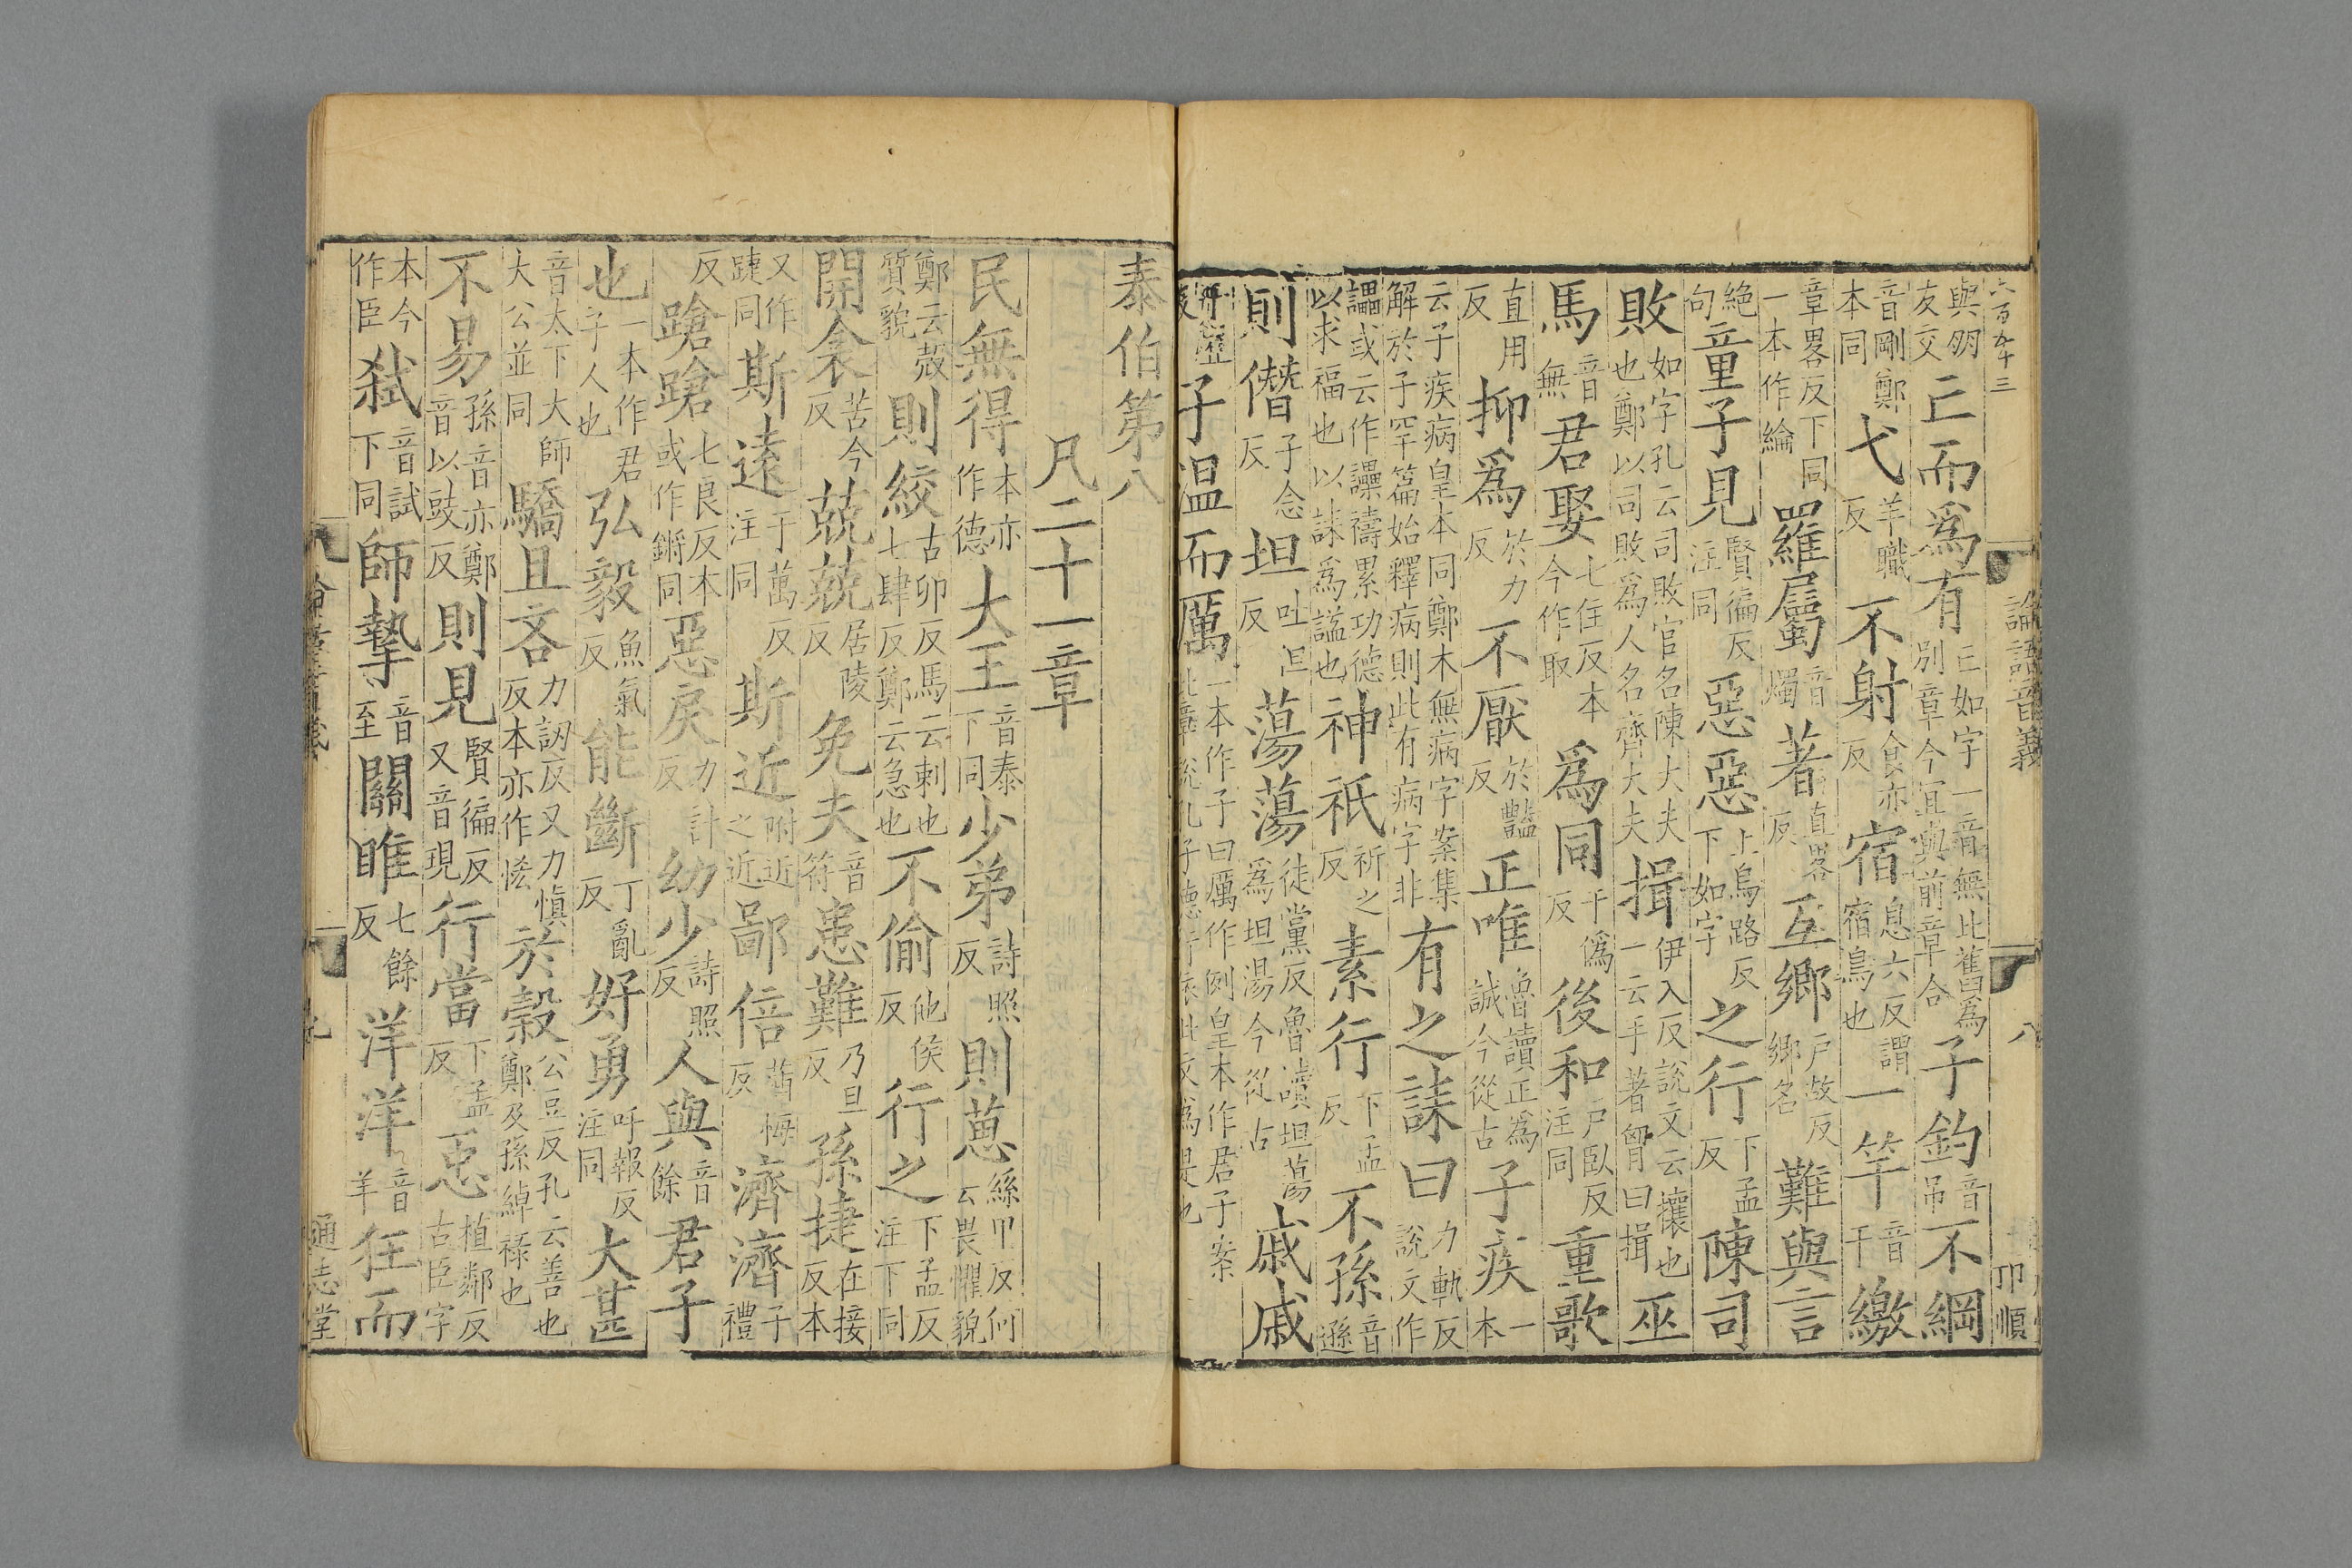 六百九十三
論語音義
八
卬順
與明友交亡而爲有亡如字一音無此舊爲別章今宜與前章合子釣音吊不綱
音剛鄭本同弋羊職反不射食亦反宿息六反謂宿鳥也一竿音干繳
章畧反下同一本作綸羅屬音燭著直畧反互鄉戸故反鄉名難與言
絶句童子見賢徧反注同惡惡上烏路反下如字之行下孟反陳司
敗如字孔云司敗官名陳大夫也鄭以司敗爲人名齊大夫揖伊入反說文云攘也一云手著胷曰揖巫
馬音無君娶七住反本今作取爲同于僞反後和戸臥反注同重歌
直用反抑爲於力反不厭於豔反正唯魯讀正爲誠今從古子疾一本
云子疾病皇本同鄭本無病字案集解於子罕篇始釋病則此有病字非有之誄曰力軌反說文作
讄或云作讄禱累功德以求福也以誄爲謚也神祇祈之反素行下孟反不孫音遜
則僭子念反坦吐但反蕩蕩徒黨反魯讀坦蕩爲坦湯今從古戚戚
千歷反子温而厲一本作子曰厲作例皇本作君子案此章說孔子德行依此文爲是也
泰伯第八
凡二十一章
民無得本亦作德大王音泰下同少弟詩照反則葸絲卩反何云畏懼貌
鄭云愨質貌則絞古卯反馬云刺也七肆反鄭云急也不偷他侯反行之下孟反注下同
開衾苦今反兢兢居陵反免夫音符患難乃旦反孫捷在接反本
又作踕同斯遠于萬反注同斯近附近之近鄙倍蒲悔反濟濟子禮
反蹌蹌七良反本或作鏘同惡戾力計反幼少詩照反人與音餘君子
也一本作君子人也弘毅魚氣反能斷丁亂反好勇呼報反注同大甚
音太下大師大公並同驕且吝力訒反又力愼反本亦作恡於穀公豆反孔云善也鄭及孫綽祿也
不易孫音亦鄭音以豉反則見賢徧反又音現行當下孟反𢘑植鄰反古臣字
本今作臣弒音試下同師摯音至關雎七餘反洋洋音羊狂而
論語音義
九
通志堂